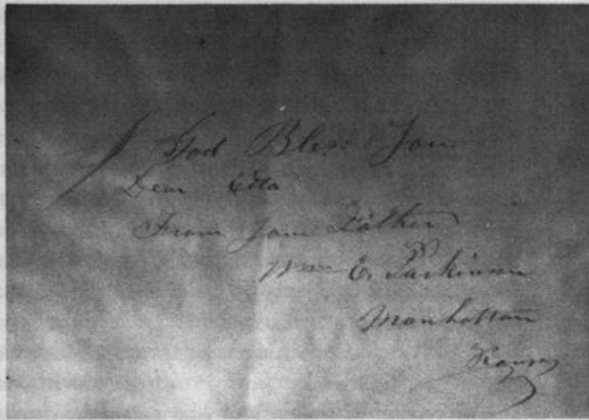 God Bless You
Dear Etta
From Your Father
Wm E. Parkinson
Manhattan
Kansas